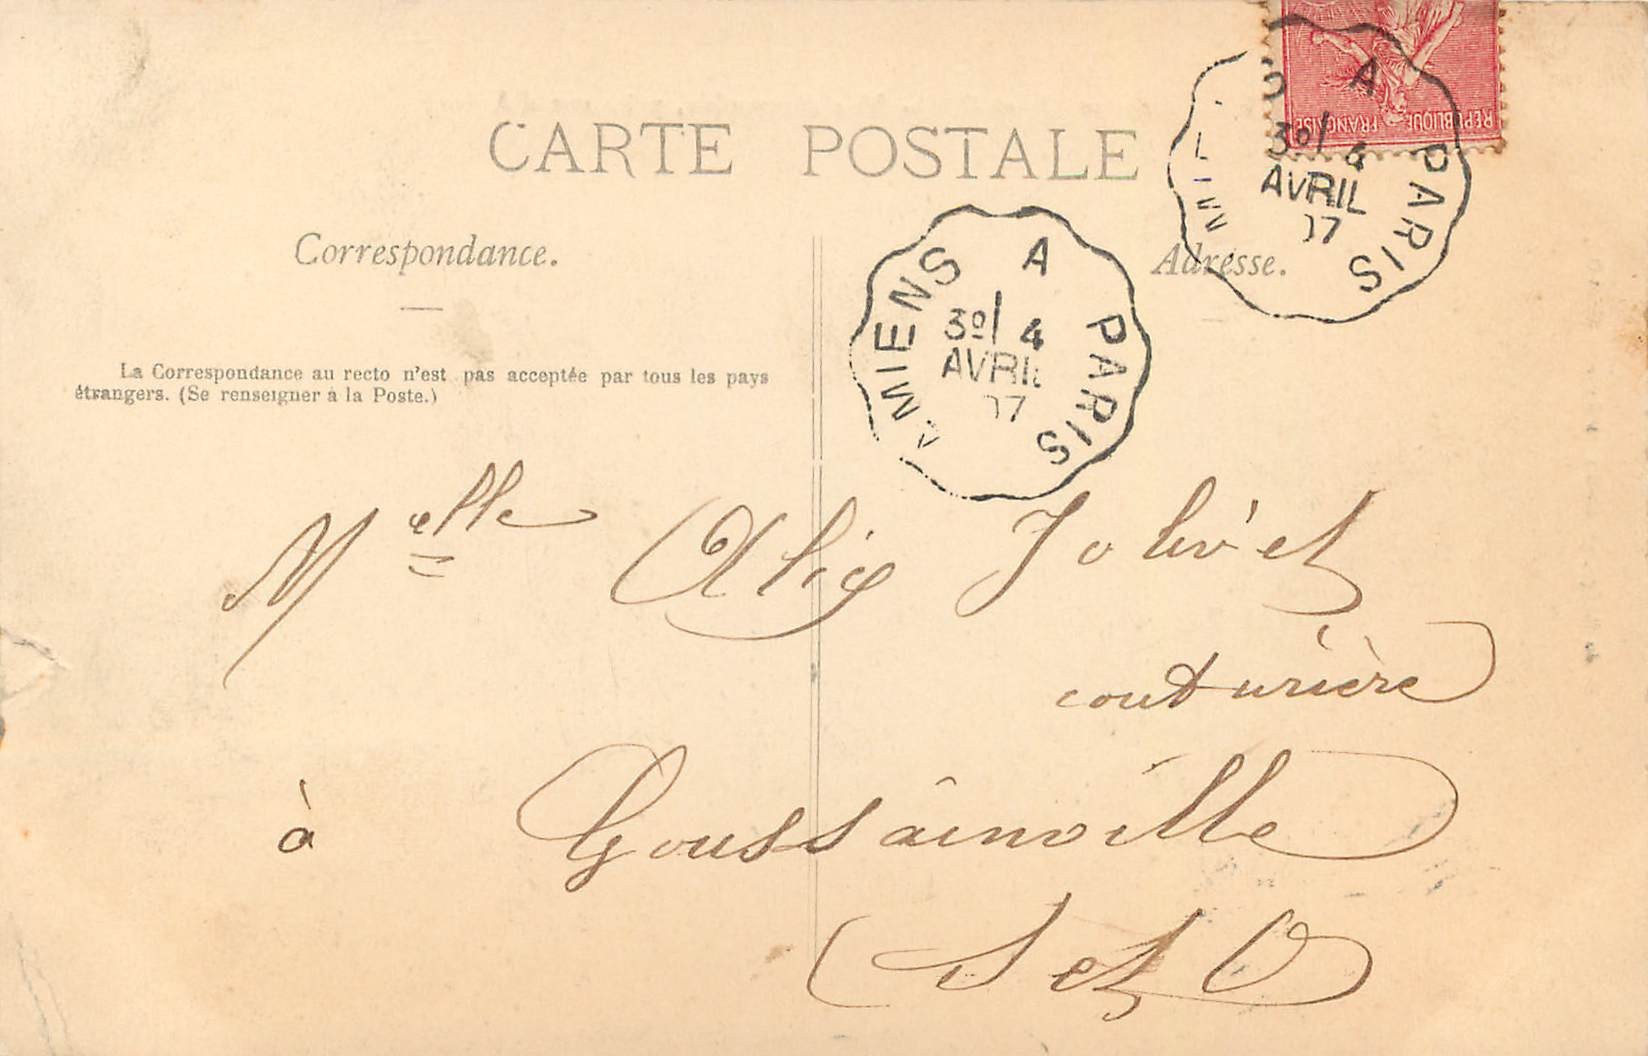 CARTE POSTALE
Correspondance.
Adresse.
La Correspondance au recto n'est pas acceptée par tous les pays
étrangers. (Se renseigner à la Poste.)
RÉPUBLIQUE FRANÇAISE
A PARIS
3º/ 4
AVRIL
07
AMIENS A PARIS
3º/ 4
AVRIL
07
Melle Alix Jolivet
couturière
à Goussainville
(S et O)